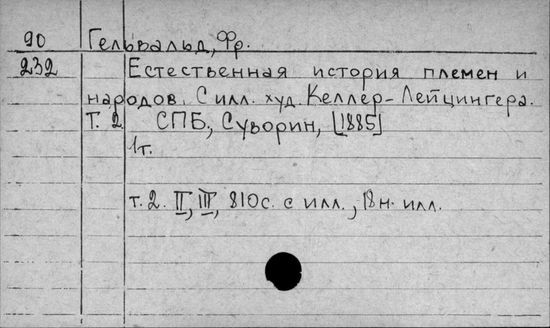 90 Гельвальд, Фр.
232 Естественная история племен и
народов. С илл. худ. Келлер-Лейцингера.
Т. 2 СПБ, Суворин, [1885]
1 т.
т. 2. II, III, 810 с. с илл., 18 н. илл.